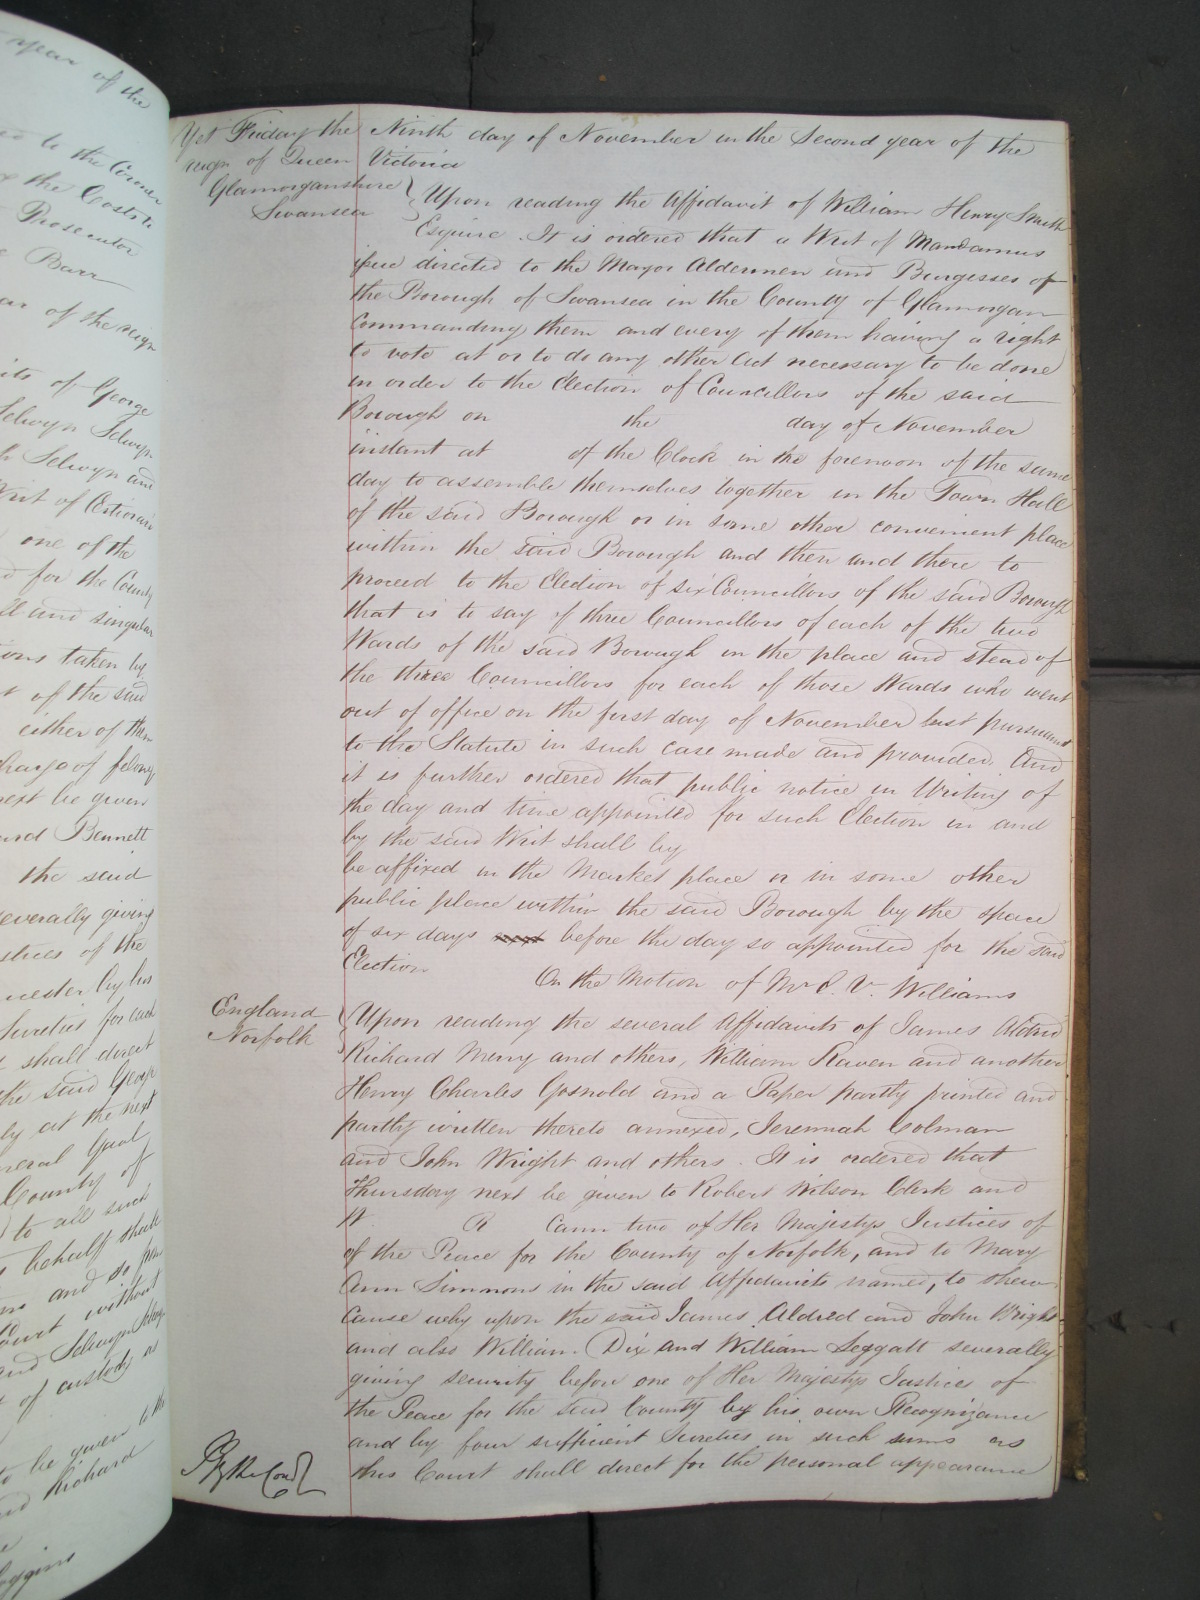 year of the
to the Coroner
the Costs to
Prosecutor
Barr
of the reign
of George
Selwyn Selwyn
Selwyn and
Writ of Certiorari
one of the
for the County
and singular
taken by
of the said
either of them
of felony
next be given
Bennett
the said
severally giving
Justices of the
by his
Sureties for each
shall direct
the said George
at the next
General Gaol
County of
to all such
behalf shall
and so
Court without
and Selwyn Selwyn
of custody as
to be given to the
and Richard
Yet Friday the Ninth day of November in the Second year of the
reign of Queen Victoria
Glamorganshire
Swansea
Upon reading the Affidavit of William Henry Smith
Esquire. It is ordered that a Writ of Mandamus
issue directed to the Mayor Aldermen and Burgesses of
the Borough of Swansea in the County of Glamorgan
Commanding them and every of them having a right
to vote at or to do any other Act necessary to be done
in order to the Election of Councillors of the said
Borough on the day of November
instant at of the Clock in the forenoon of the same
day to assemble themselves together in the Town Hall
of the said Borough or in some other convenient place
within the said Borough and then and there to
proceed to the Election of six Councillors of the said Borough
that is to say of three Councillors of each of the two
Wards of the said Borough in the place and stead of
the three Councillors for each of those Wards who went
out of office on the first day of November last pursuant
to the Statute in such case made and provided. And
it is further ordered that public notice in Writing of
the day and time appointed for such Election in and
by the said Writ shall by
be affixed in the Market place or in some other
public place within the said Borough by the space
of six days before the day so appointed for the said
Election
On the Motion of Mr E. V. Williams
England
Norfolk
Upon reading the several Affidavits of James Aldred
Richard Merry and others, William Raven and another
Henry Charles Gosnold and a Paper partly printed and
partly written thereto annexed, Jeremiah Colman
and John Wright and others. It is ordered that
Thursday next be given to Robert Wilson Clerk and
W R Cann two of Her Majestys Justices of
of the Peace for the County of Norfolk, and to Mary
Ann Simmons in the said Affidavits named, to shew
cause why upon the said James Aldred and John Wright
and also William Dix and William Leggatt severally
giving security before one of Her Majestys Justices of
the Peace for the said County by his own Recognizance
and by four sufficient Sureties in such sums as
this Court shall direct for the personal appearance
By the Court